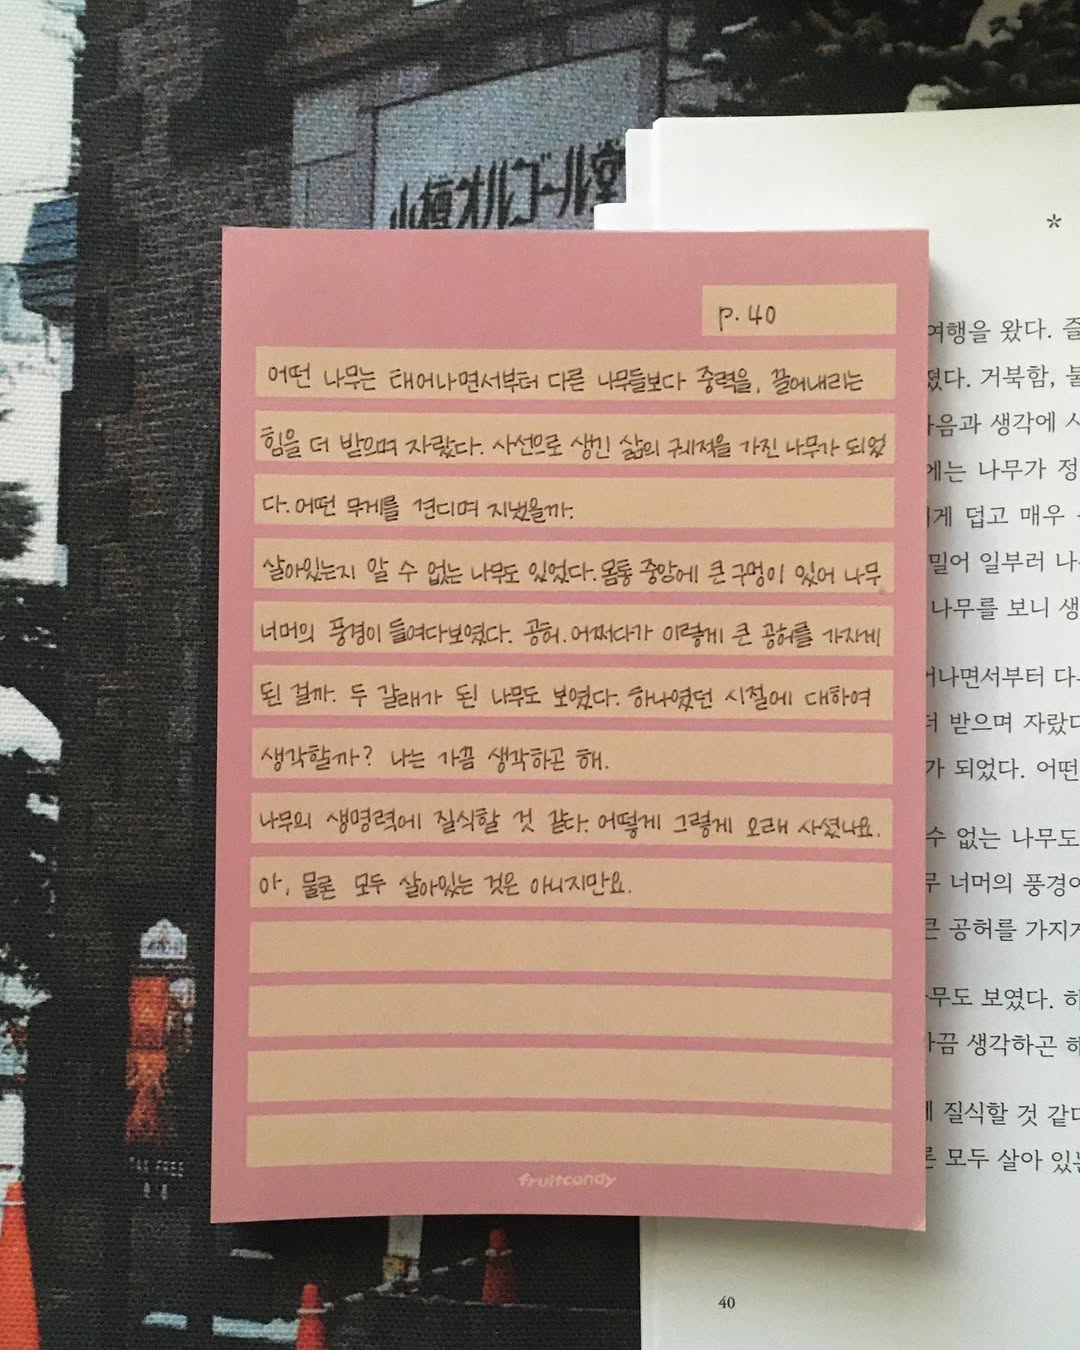 小樽オルゴール堂
*
p. 40
어떤 나무는 태어나면서부터 다른 나무들보다 중력을, 끌어내리는
힘을 더 받으며 자랐다. 사선으로 생긴 삶의 궤적을 가진 나무가 되었
다. 어떤 무게를 견디며 지냈을까.
살아있는지 알 수 없는 나무도 있었다. 몸통 중앙에 큰 구멍이 있어 나무
너머의 풍경이 들여다보였다. 공허. 어쩌다가 이렇게 큰 공허를 가지게
된 걸까. 두 갈래가 된 나무도 보였다. 하나였던 시절에 대하여
생각할까? 나는 가끔 생각하곤 해.
나무의 생명력에 질식할 것 같다. 어떻게 그렇게 오래 사셨나요.
아, 물론 모두 살아있는 것은 아니지만요.
fruitcandy
여행을 왔다. 즐
졌다. 거북함, 불
마음과 생각에 사
에는 나무가 정
게 덮고 매우
밀어 일부러 나
나무를 보니 생
어나면서부터 다
더 받으며 자랐다
가 되었다. 어떤
수 없는 나무도
무 너머의 풍경이
큰 공허를 가지게
나무도 보였다. 하
가끔 생각하곤 해
에 질식할 것 같다
론 모두 살아 있는
40
TAX FREE